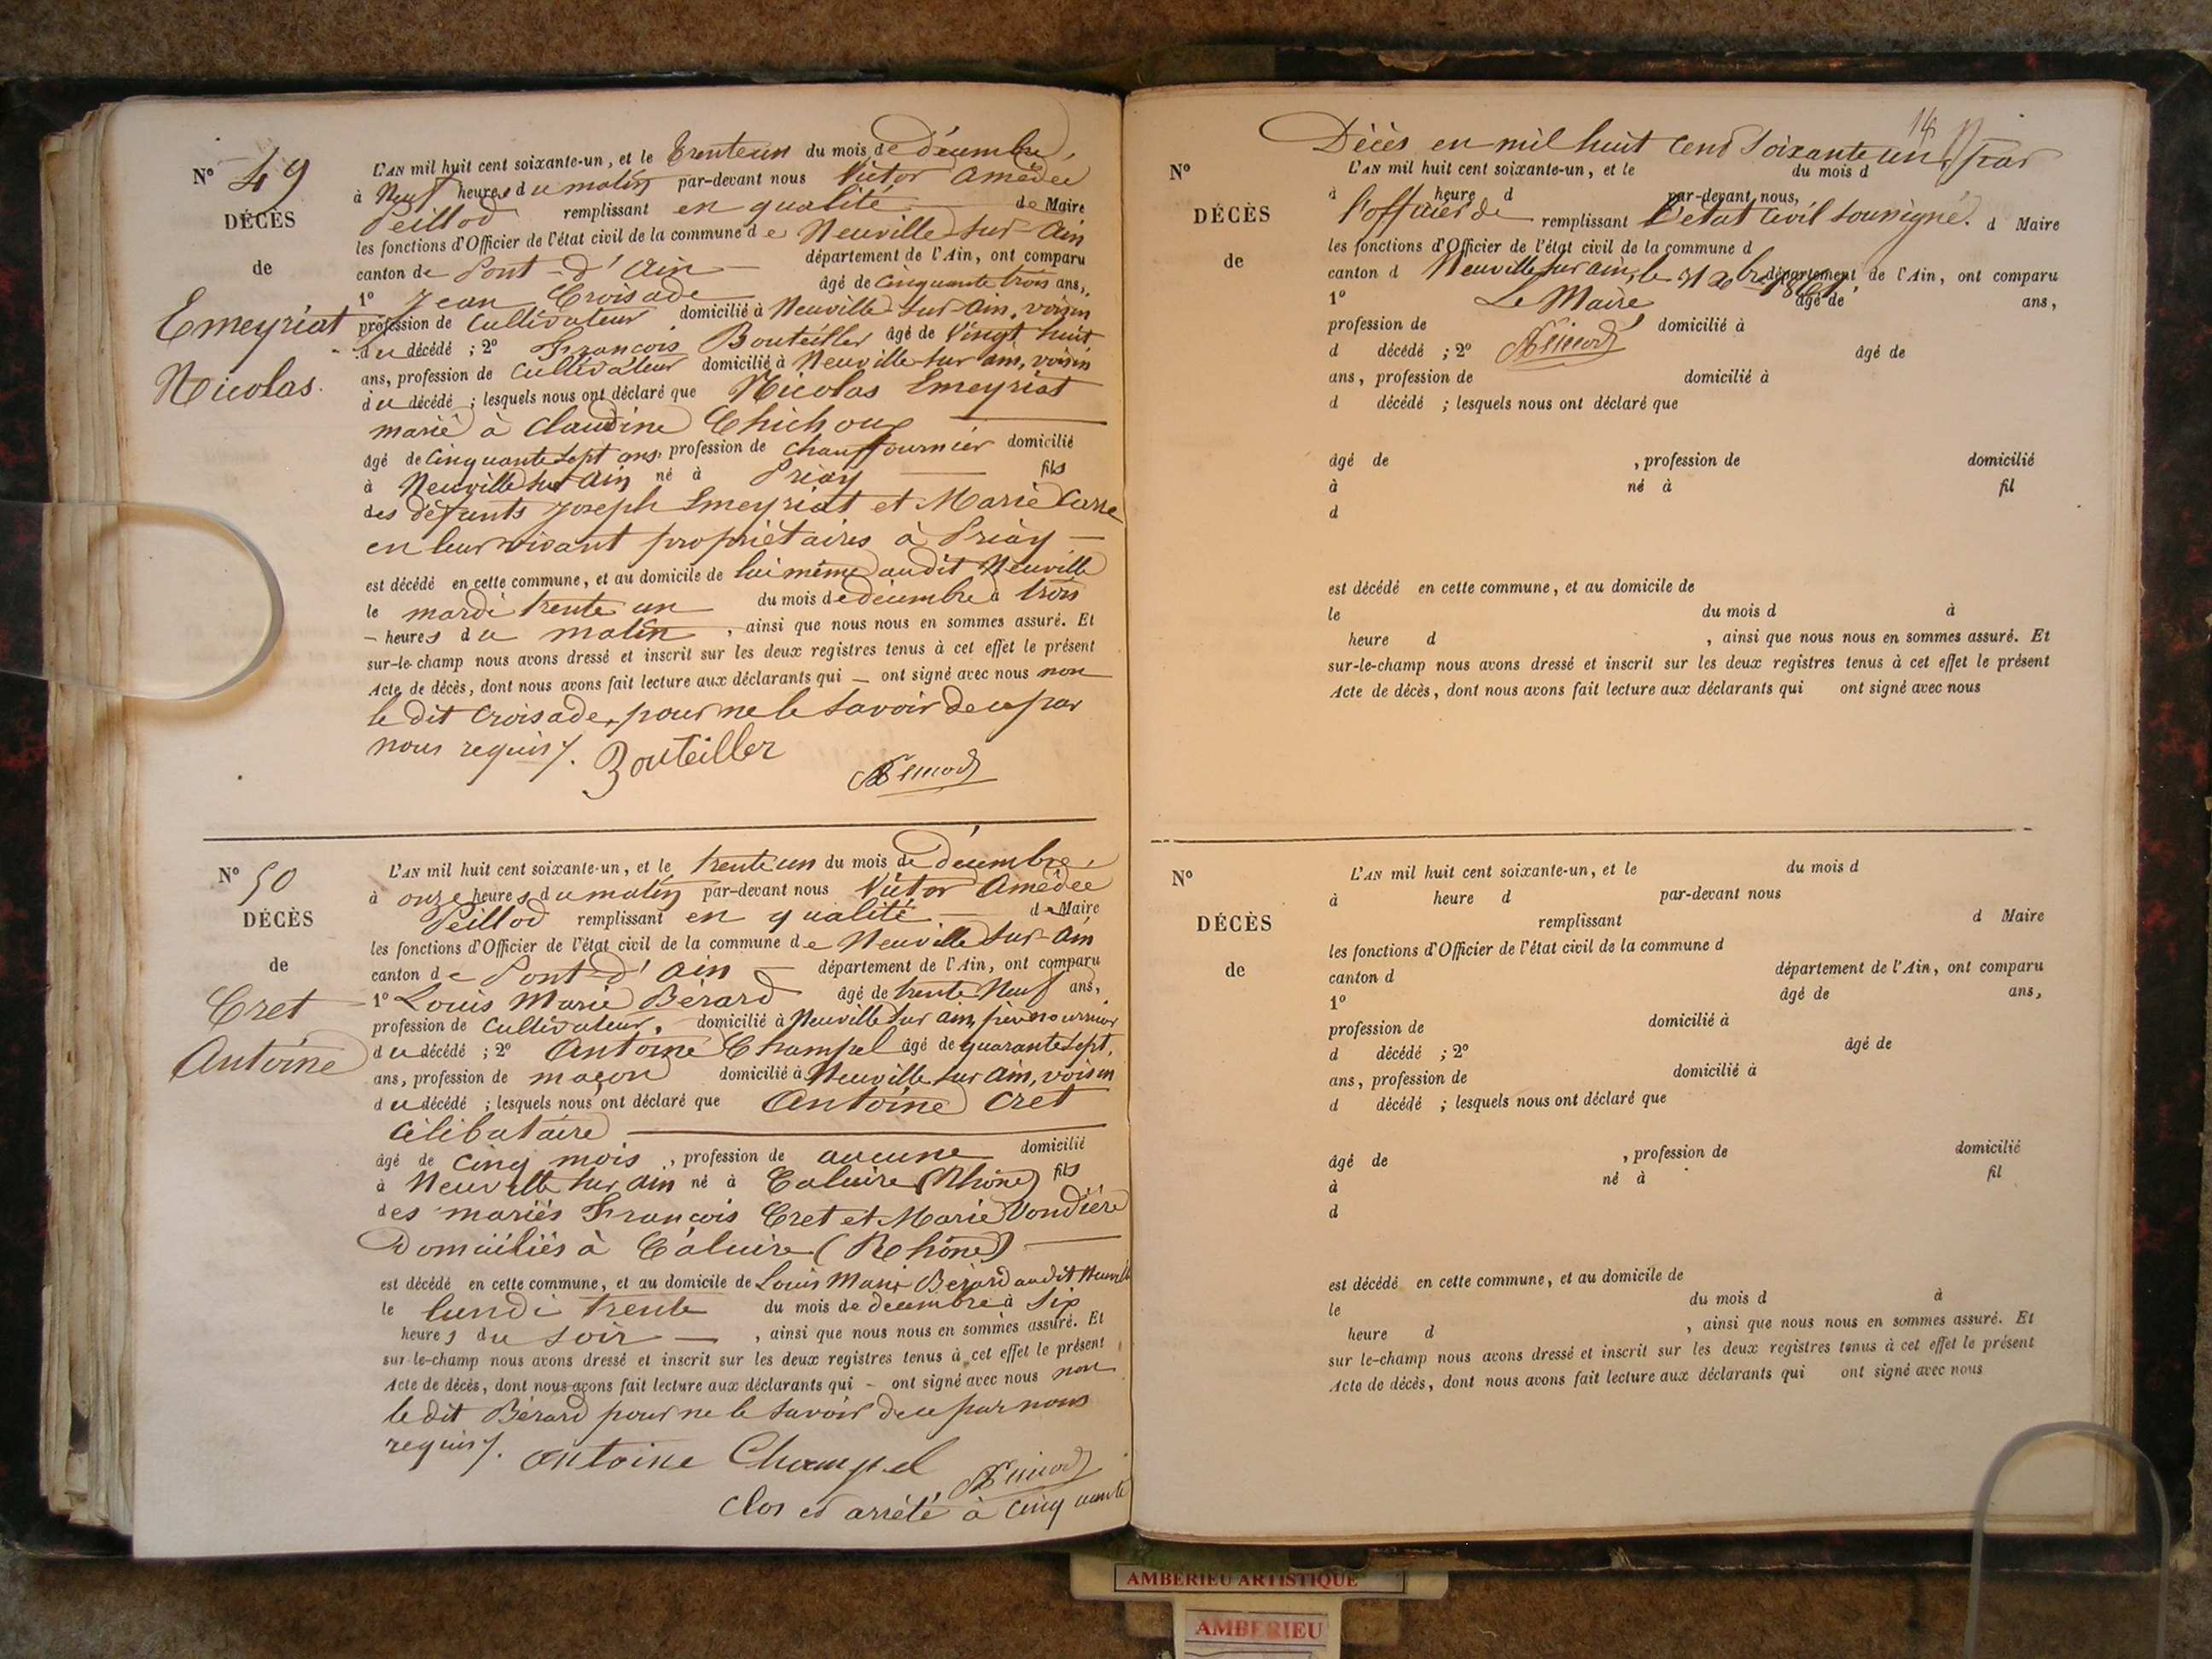 N° 49
DÉCÈS
de
Emeyriat
Nicolas.
L'AN mil huit cent soixante-un, et le trente un du mois de décembre,
à Neuf heures du matin par-devant nous Victor Amédée
Peillod remplissant en qualité de Maire
les fonctions d'Officier de l'état civil de la commune de Neuville sur Ain
canton de Pont-d'Ain département de l'Ain, ont comparu
1° Jean Croisade âgé de Cinquante trois ans,
profession de Cultivateur domicilié à Neuville sur Ain, voisin
du décédé ; 2° François Bouteiller âgé de Vingt huit
ans, profession de Cultivateur domicilié à Neuville sur ain, voisin
du décédé ; lesquels nous ont déclaré que Nicolas Emeyriat
marié à Claudine Chichoux
âgé de Cinquante Sept ans, profession de Chauffournier domicilié
à Neuville sur Ain né à Priay fils
des défunts Joseph Emeyriat et Marie Carre
en leur vivant propriétaires à Priay
est décédé en cette commune, et au domicile de lui même audit Neuville
le mardi trente un du mois de décembre à trois
heures du matin, ainsi que nous nous en sommes assuré. Et
sur-le-champ nous avons dressé et inscrit sur les deux registres tenus à cet effet le présent
Acte de décès, dont nous avons fait lecture aux déclarants qui ont signé avec nous non
le dit Croisade, pour ne le savoir de ce par
nous requis.
Bouteiller
N° 50
DÉCÈS
de
Cret
Antoine
L'AN mil huit cent soixante-un, et le trente un du mois de décembre,
à onze heures du matin par-devant nous Victor Amédée
Peillod remplissant en qualité de Maire
les fonctions d'Officier de l'état civil de la commune de Neuville sur Ain
canton de Pont-d'Ain département de l'Ain, ont comparu
1° Louis Marie Bérard âgé de trente Neuf ans,
profession de Cultivateur, domicilié à Neuville sur ain, père nourricier
du décédé ; 2° Antoine Champel âgé de quarante Sept,
ans, profession de maçon domicilié à Neuville sur Ain, voisin
du décédé ; lesquels nous ont déclaré que Antoine Cret
Célibataire
âgé de Cinq mois, profession de aucune domicilié
à Neuville sur Ain né à Caluire (Rhône) fils
des mariés François Cret et Marie Vondière
Domiciliés à Caluire (Rhône)
est décédé en cette commune, et au domicile de Louis Marie Bérard audit Neuville
le lundi trente du mois de décembre à six
heures du soir, ainsi que nous nous en sommes assuré. Et
sur-le-champ nous avons dressé et inscrit sur les deux registres tenus à cet effet le présent
Acte de décès, dont nous avons fait lecture aux déclarants qui ont signé avec nous non
le dit Bérard pour ne le savoir de ce par nous
requis.
Antoine Champel
Clos et arrêté à Cinquante
Décès en mil huit cent soixante un, par
N°
L'AN mil huit cent soixante-un, et le du mois d
à heure d par-devant nous,
DÉCÈS
l'officier de remplissant l'état civil soussigné. d Maire
les fonctions d'Officier de l'état civil de la commune d
de
canton d Neuville sur ain, le 31 Xbre 1861. département de l'Ain, ont comparu
1° Le Maire âgé de ans,
profession de domicilié à
d décédé ; 2° âgé de
ans, profession de domicilié à
d décédé ; lesquels nous ont déclaré que
âgé de , profession de domicilié
à né à fil
d
est décédé en cette commune, et au domicile de
le du mois d à
heure d , ainsi que nous nous en sommes assuré. Et
sur-le-champ nous avons dressé et inscrit sur les deux registres tenus à cet effet le présent
Acte de décès, dont nous avons fait lecture aux déclarants qui ont signé avec nous
N°
DÉCÈS
de
L'AN mil huit cent soixante-un, et le du mois d
à heure d par-devant nous
remplissant d Maire
les fonctions d'Officier de l'état civil de la commune d
canton d département de l'Ain, ont comparu
1° âgé de ans,
profession de domicilié à
d décédé ; 2° âgé de
ans, profession de domicilié à
d décédé ; lesquels nous ont déclaré que
âgé de , profession de domicilié
à né à fil
d
est décédé en cette commune, et au domicile de
le du mois d à
heure d , ainsi que nous nous en sommes assuré. Et
sur le-champ nous avons dressé et inscrit sur les deux registres tenus à cet effet le présent
Acte de décès, dont nous avons fait lecture aux déclarants qui ont signé avec nous
AMBERIEU ARTISTIQUE
AMBERIEU